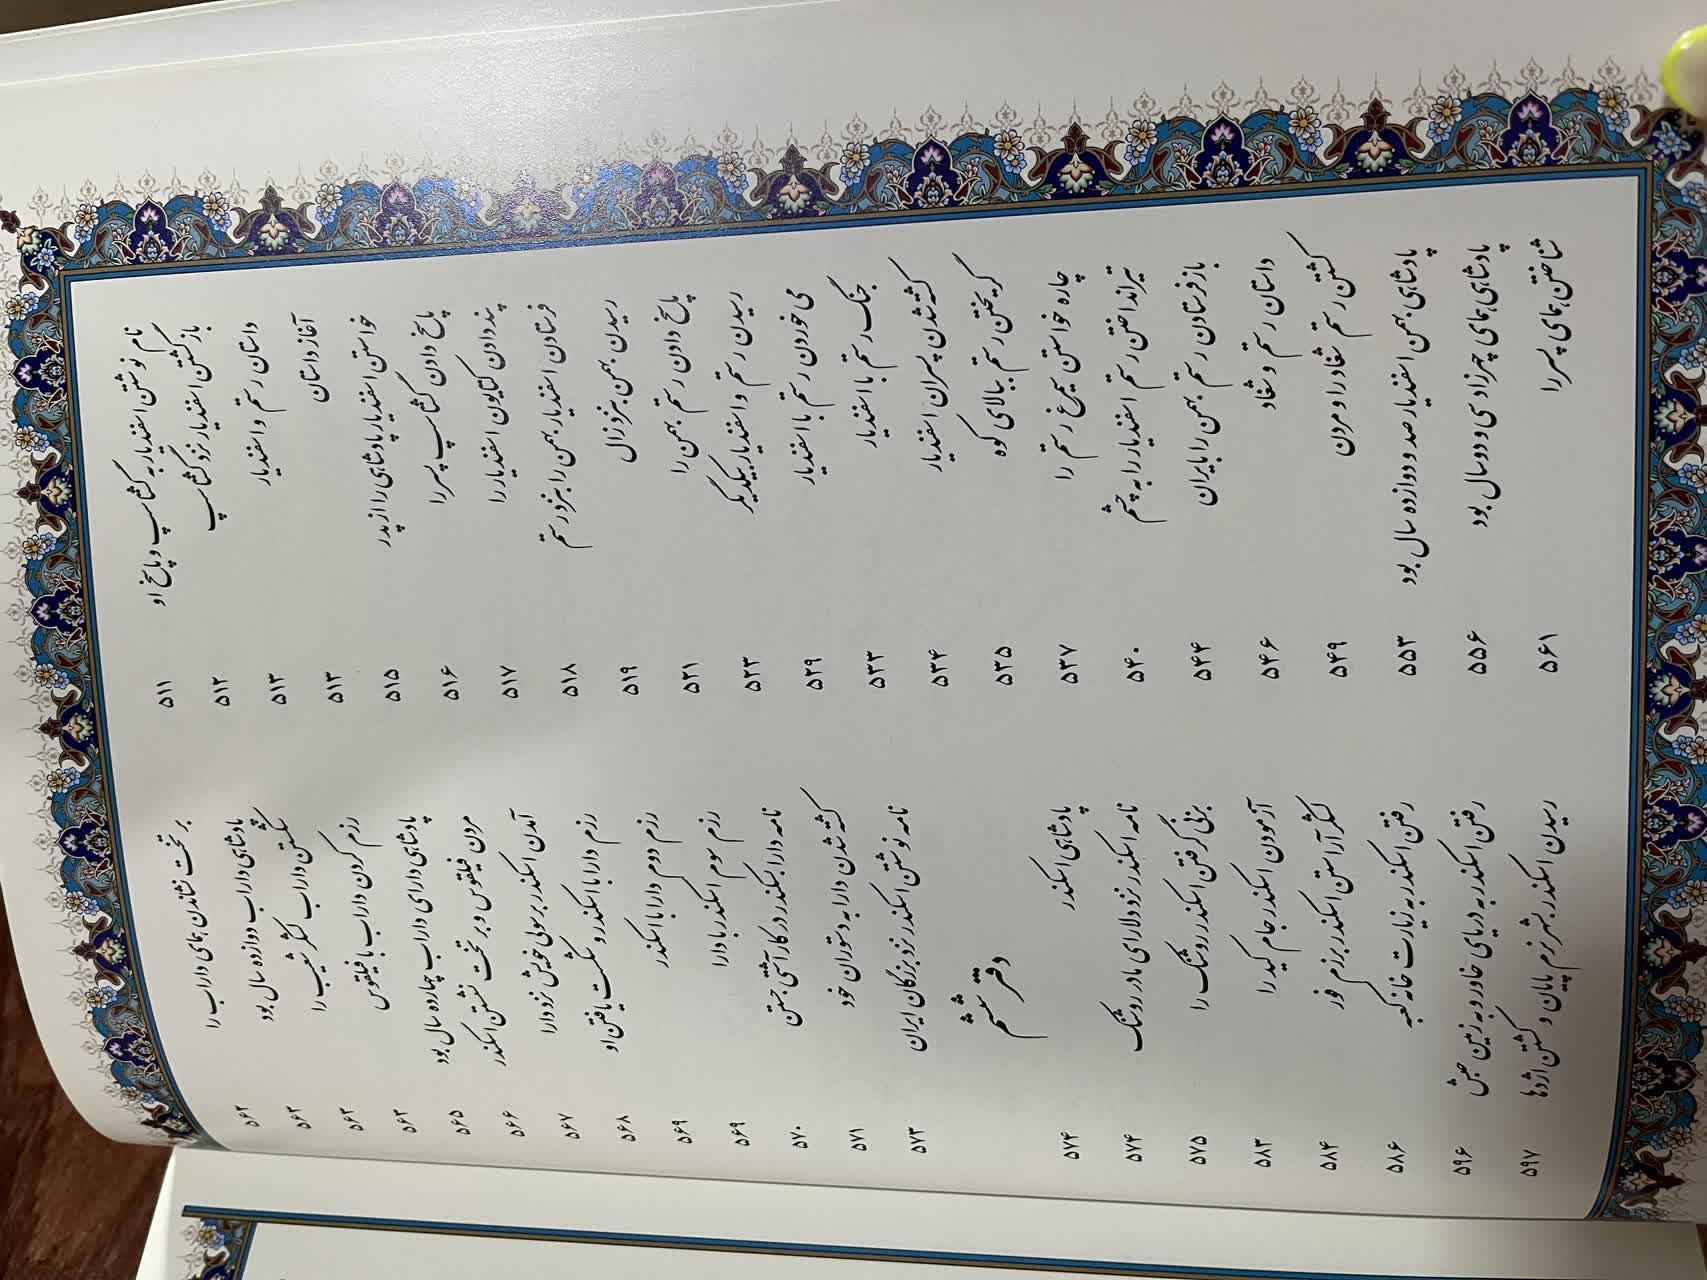 نام نوشتن اسفندیار به گشتاسپ و پاسخ او ۵۱۱
باز گشتن اسفندیار نزد گشتاسپ ۵۱۲
داستان رستم و اسفندیار ۵۱۳
آغاز داستان ۵۱۳
خواستن اسفندیار پادشاهی را از پدر ۵۱۵
پاسخ دادن گشتاسپ پسر را ۵۱۶
پند دادن کتایون اسفندیار را ۵۱۷
فرستادن اسفندیار بهمن را بنزد رستم ۵۱۸
رسیدن بهمن بنزد زال ۵۱۹
پاسخ دادن رستم بهمن را ۵۲۱
رسیدن رستم و اسفندیار بیکدیگر ۵۲۳
می خوردن رستم با اسفندیار ۵۲۹
جنگ رستم با اسفندیار ۵۳۳
کشته شدن پسران اسفندیار ۵۳۴
گریختن رستم ببالای کوه ۵۳۵
چاره خواستن سیمرغ رستم را ۵۳۷
تیر انداختن رستم اسفندیار را به چشم ۵۴۰
باز فرستادن رستم بهمن را بایران ۵۴۴
داستان رستم و شغاد ۵۴۶
کشتن رستم شغاد را و مردن ۵۴۹
پادشاهی بهمن اسفندیار صد و دوازده سال بود ۵۵۳
پادشاهی همای چهرزاد سی و دو سال بود ۵۵۶
شناختن همای پسر را ۵۶۱
بر تخت نشاندن همای داراب را ۵۶۲
پادشاهی داراب دوازده سال بود ۵۶۳
شکستن داراب لشکر شعیب را ۵۶۳
رزم کردن داراب با فیلقوس ۵۶۳
پادشاهی دارای داراب چهارده سال بود ۵۶۵
مردن فیلقوس و بر تخت نشستن اسکندر ۵۶۶
آمدن اسکندر برسولی خویش نزد دارا ۵۶۷
رزم دارا با اسکندر و شکست یافتن او ۵۶۸
رزم دوم دارا با اسکندر ۵۶۹
رزم سوم اسکندر با دارا ۵۶۹
نامه دارا بسکندر در کار آشتی جستن ۵۷۰
کشته شدن دارا به دستوران خود ۵۷۱
نامه نوشتن اسکندر نزد بزرگان ایران ۵۷۳
دفتر ششم
پادشاهی اسکندر ۵۷۴
نامه اسکندر نزد دلارای مادر روشنک ۵۷۴
بزنی گرفتن اسکندر روشنک را ۵۷۵
آزمودن اسکندر جام کید را ۵۸۳
لشکر آراستن اسکندر برزم فور ۵۸۴
رفتن اسکندر به زیارت خانه کعبه ۵۸۶
رفتن اسکندر به دریای خاور و به زمین حبش ۵۹۶
رسیدن اسکندر بشهر نرم پایان و کشتن اژدها ۵۹۷